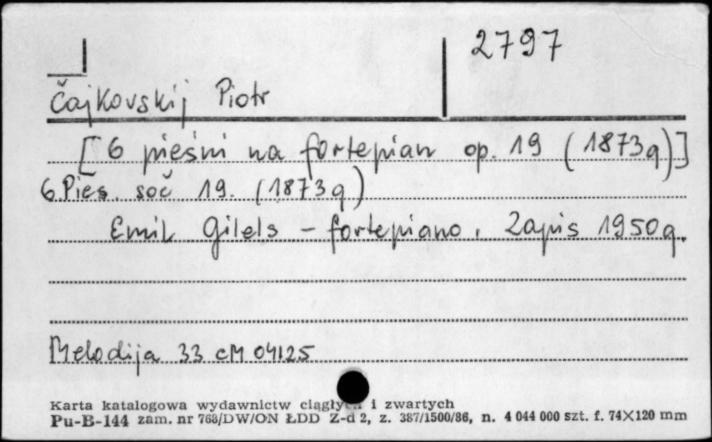 2797
Čajkovskij Piotr
[6 pieśni na fortepian op. 19 (1873g)]
6 Pies. soč 19. (1873g)
Emil Gilels – fortepiano. Zapis 1950g.
Melodija 33 cM 04125
Karta katalogowa wydawnictw ciągłych i zwartych
Pu-B-144 zam. nr 768/DW/ON ŁDD Z-d 2, z. 387/1500/86, n. 4 044 000 szt. f. 74×120 mm